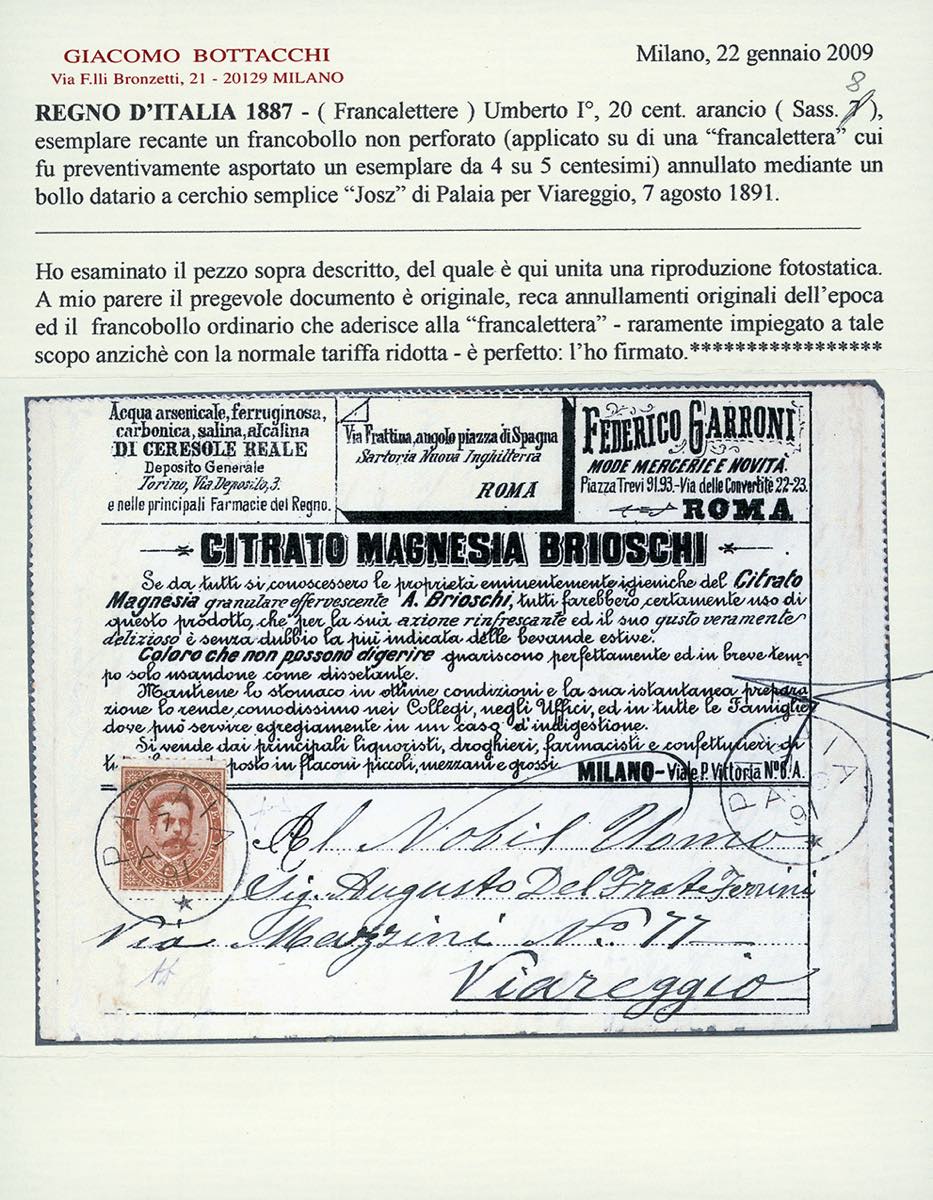 GIACOMO BOTTACCHI
Via F.lli Bronzetti, 21 - 20129 MILANO
Milano, 22 gennaio 2009
8
REGNO D'ITALIA 1887 - ( Francalettere ) Umberto I°, 20 cent. arancio ( Sass. 7 ),
esemplare recante un francobollo non perforato (applicato su di una “francalettera” cui
fu preventivamente asportato un esemplare da 4 su 5 centesimi) annullato mediante un
bollo datario a cerchio semplice “Josz” di Palaia per Viareggio, 7 agosto 1891.
Ho esaminato il pezzo sopra descritto, del quale è qui unita una riproduzione fotostatica.
A mio parere il pregevole documento è originale, reca annullamenti originali dell'epoca
ed il francobollo ordinario che aderisce alla “francalettera” - raramente impiegato a tale
scopo anzichè con la normale tariffa ridotta - è perfetto: l'ho firmato.*****************
Acqua arsenicale, ferruginosa,
carbonica, salina, alcalina
DI CERESOLE REALE
Deposito Generale
Torino, Via Deposito, 3.
e nelle principali Farmacie del Regno.
Via Frattina, angolo piazza di Spagna
Sartoria Nuova Inghilterra
ROMA
FEDERICO GARRONI
MODE MERCERIE E NOVITÀ.
Piazza Trevi 91.93.-Via delle Convertite 22-23.
ROMA
CITRATO MAGNESIA BRIOSCHI
Se da tutti si conoscessero le proprietà eminentemente igieniche del Citrato
Magnesia granulare effervescente A. Brioschi, tutti farebbero certamente uso di
questo prodotto, che per la sua azione rinfrescante ed il suo gusto veramente
delizioso è senza dubbio la più indicata delle bevande estive.
Coloro che non possono digerire guariscono perfettamente ed in breve tem-
po solo usandone come dissetante.
Mantiene lo stomaco in ottime condizioni e la sua istantanea prepara
zione lo rende comodissimo nei Collegi, negli Uffici, ed in tutte le Famiglie
dove può service egregiamente in un caso d'indigestione.
Si vende dai principali liquoristi, droghieri, farmacisti e confetturieri di
posto in flaconi piccoli, mezzani e grossi
MILANO - Viale P. Vittoria N° 6. A.
PALAIA
7
A
91
PALAIA
A
91
Al Nobil Uomo
Sig. Augusto Del Frate Ferrini
Via Mazzini N.º 77
Viareggio